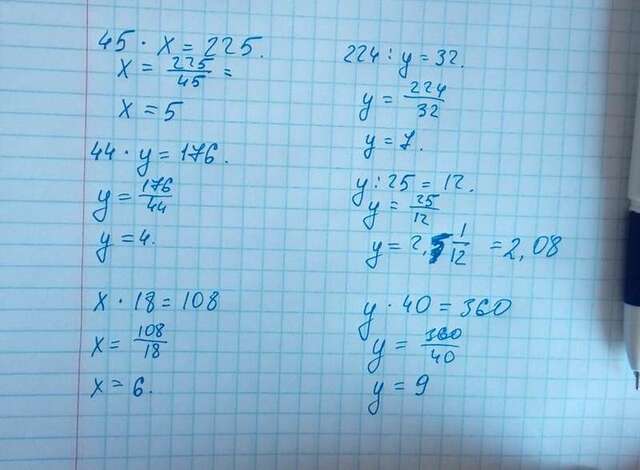 45 · x = 225.
x = 225/45 =
x = 5
44 · y = 176.
y = 176/44
y = 4.
x · 18 = 108
x = 108/18
x = 6.
224 : y = 32.
y = 224/32
y = 7.
y : 25 = 12.
y = 25/12
y = 2 1/12 = 2,08
y · 40 = 360
y = 360/40
y = 9